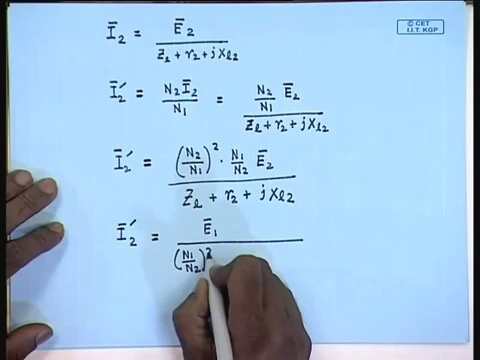 © CET
I.I.T. KGP
Ī₂ = Ē₂ / (Z_l + r₂ + j x_l2)
Ī₂′ = N₂ Ī₂ / N₁ = (N₂/N₁) Ē₂ / (Z_l + r₂ + j x_l2)
Ī₂′ = (N₂/N₁)² · (N₁/N₂) Ē₂ / (Z_l + r₂ + j x_l2)
Ī₂′ = Ē₁ / (N₁/N₂)²